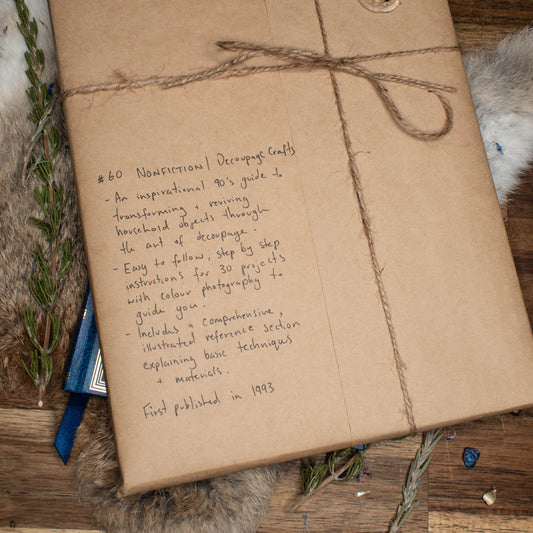 #60 NONFICTION | Decoupage Crafts
- An inspirational 90's guide to
transforming + reviving
household objects through
the art of decoupage.
- Easy to follow, step by step
instructions for 30 projects
with colour photography to
guide you.
- Includes a comprehensive,
illustrated reference section
explaining basic techniques
+ materials.
First published in 1993